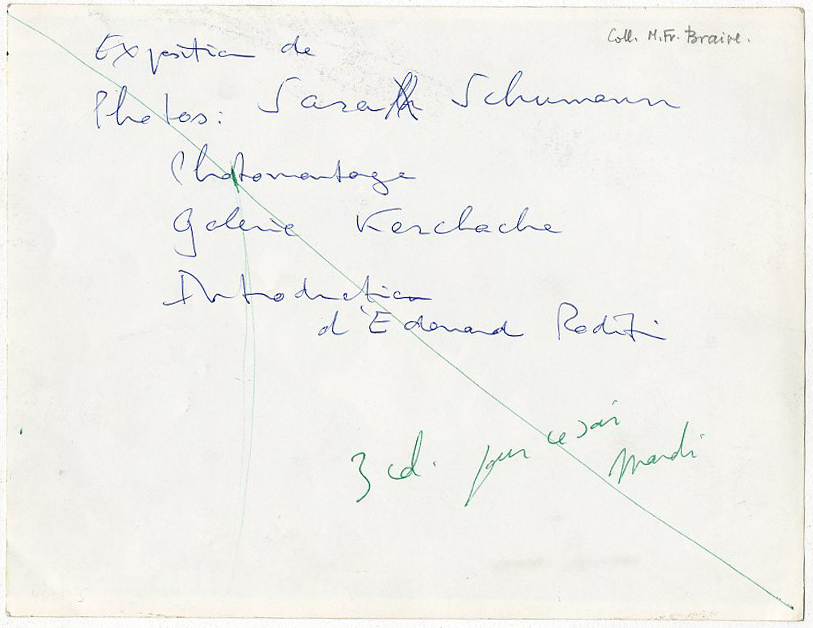 Coll. M.Fr. Braive.
Exposition de
Photos: Sarah Schumann
Photomontage
Galerie Kerchache
Introduction
d'Edouard Roditi
3 cd. pour ce soir
mardi